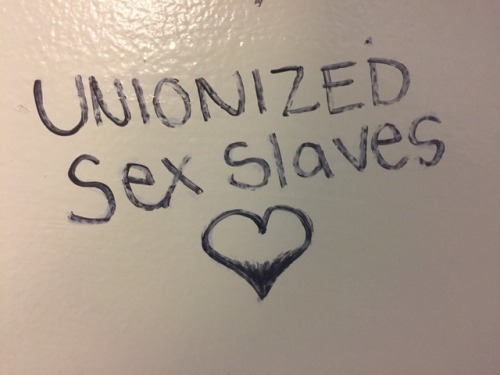 UNIONIZED
Sex Slaves